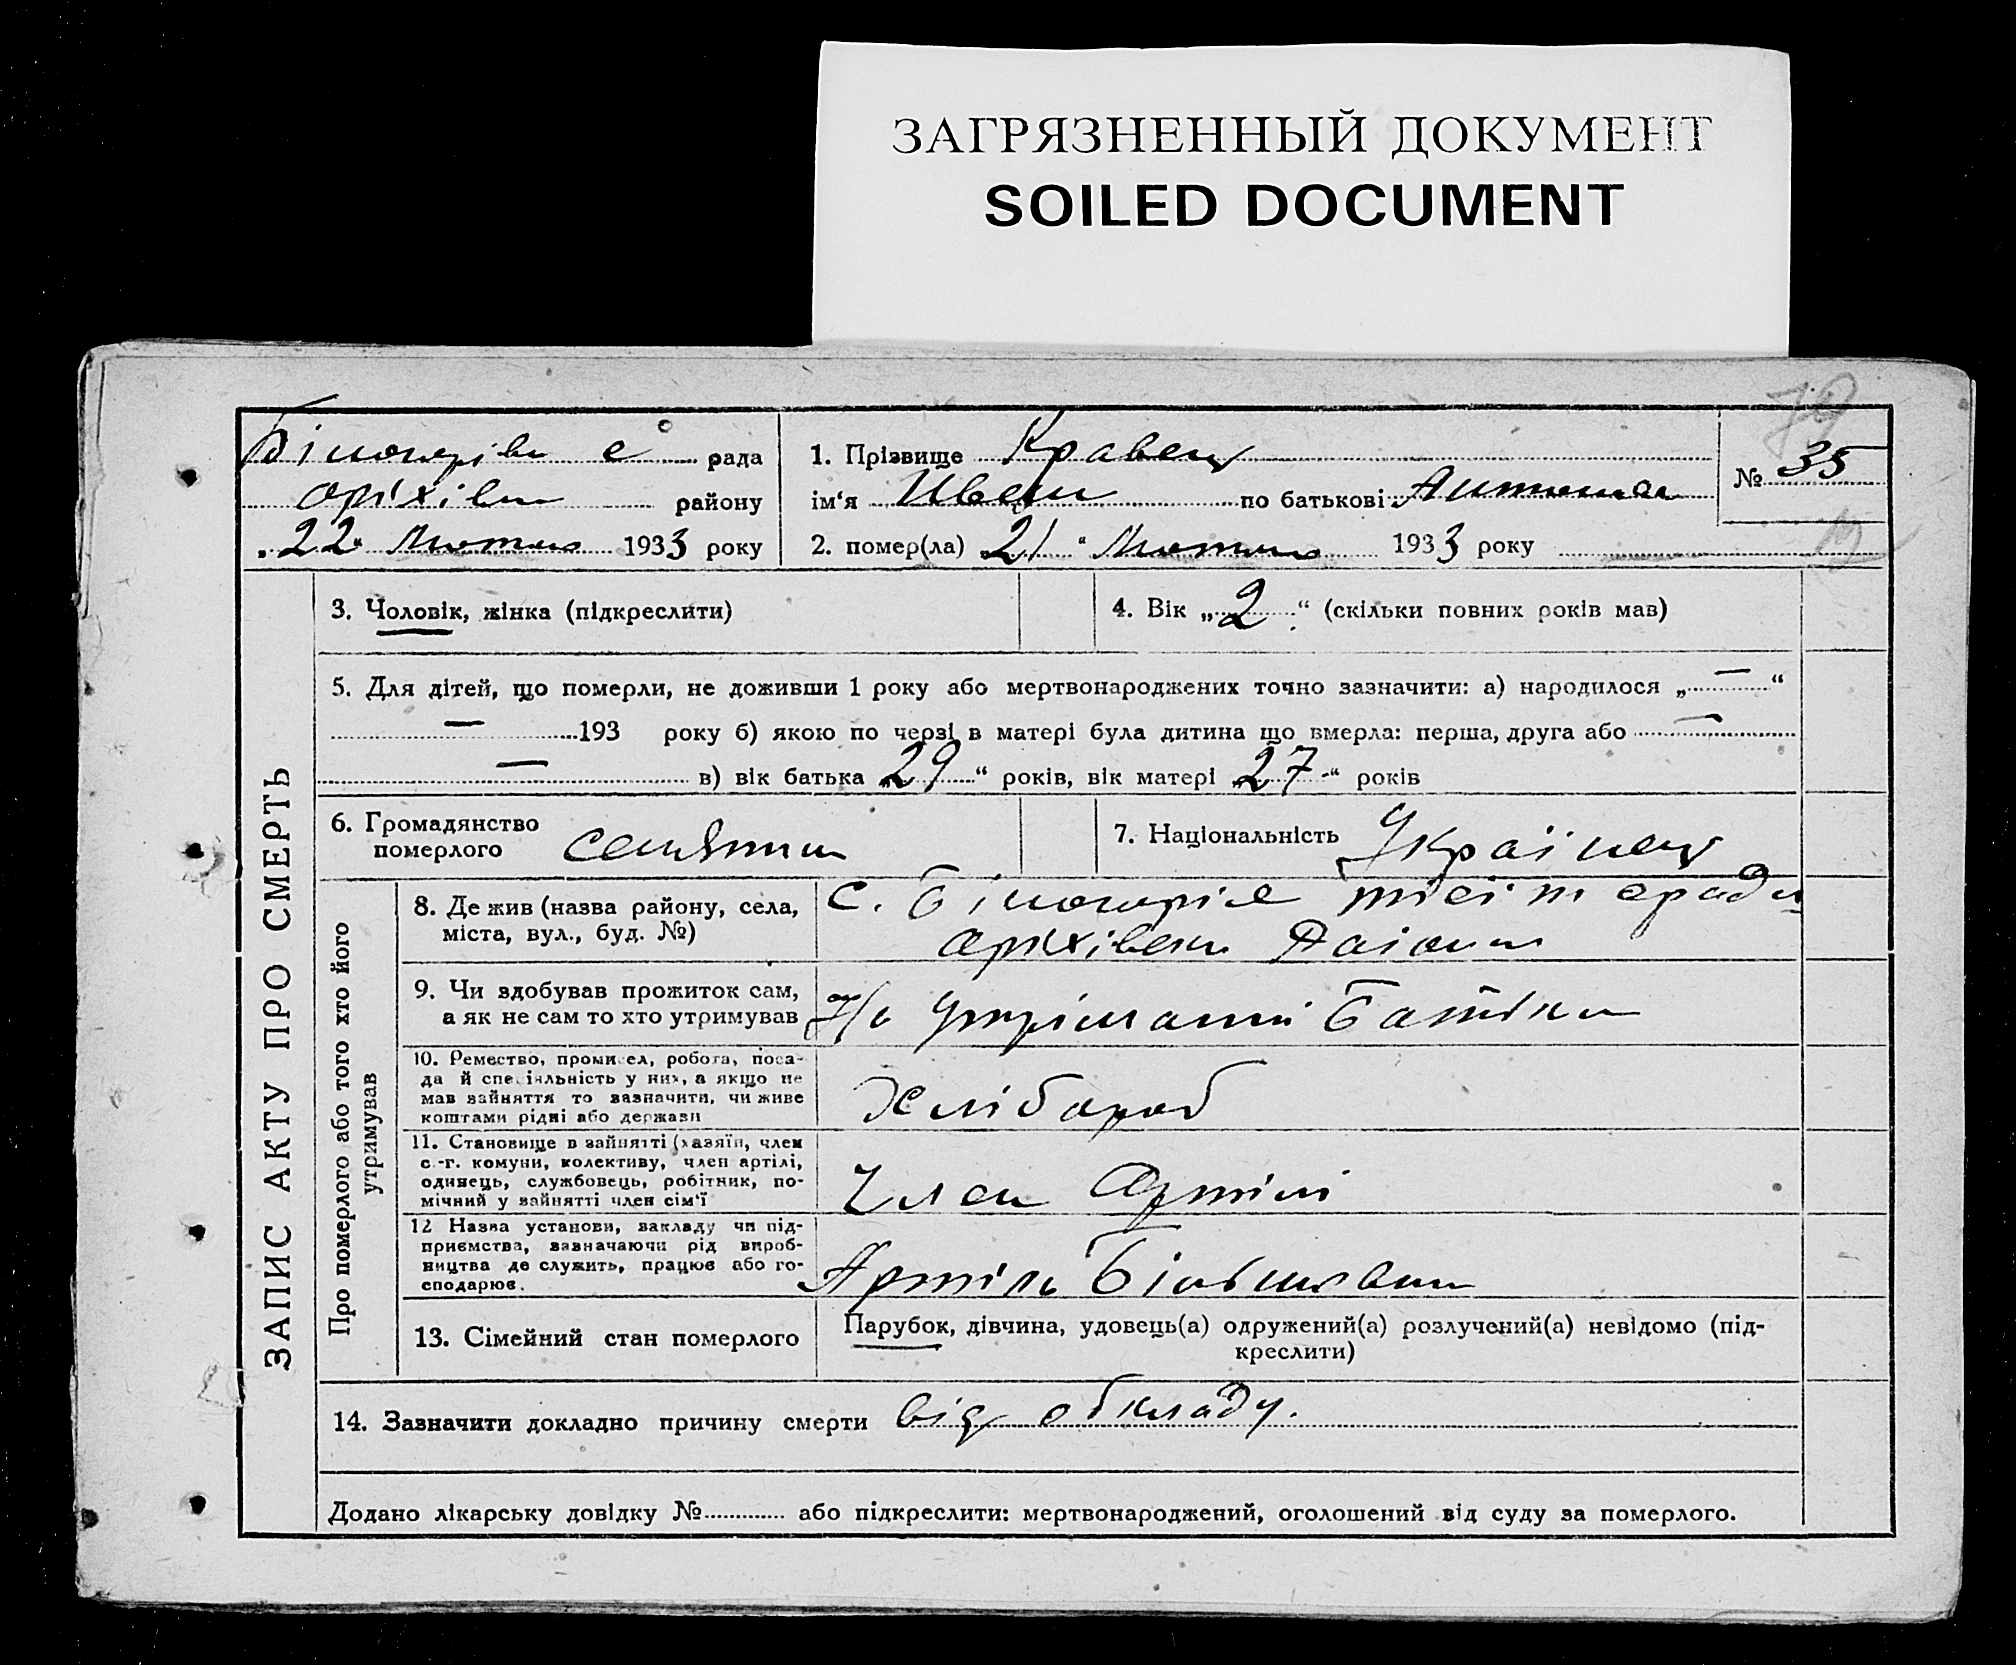 ЗАГРЯЗНЕННЫЙ ДОКУМЕНТ
SOILED DOCUMENT
рада
району
„22“ 1933 року
1. Прізвище Кравец
ім'я Иван по батькові
2. помер(ла) 21 “ 1933 року
№ 35
ЗАПИС АКТУ ПРО СМЕРТЬ
3. Чоловік, жінка (підкреслити)
4. Вік „2“ (скільки повних років мав)
5. Для дітей, що померли, не доживши 1 року або мертвонароджених точно зазначити: а) народилося „—“
— 193 року б) якою по черзі в матері була дитина що вмерла: перша, друга або —
— в) вік батька „29“ років, вік матері „27“ років
6. Громадянство
померлого
7. Національність Українец
Про померлого або того хто його
утримував
8. Де жив (назва району, села,
міста, вул., буд. №)
с.
9. Чи здобував прожиток сам,
а як не сам то хто утримував
На утріманні батька
10. Ремество, промисел, робота, поса-
да й спеціяльність у них, а якщо не
мав зайняття то зазначити, чи живе
коштами рідні або держави
Хлібороб
11. Становище в зайнятті (хазяїн, член
с.-г. комуни, колективу, член артілі,
одинець, службовець, робітник, по-
мічний у зайнятті член сім'ї
Член Артілі
12 Назва установи, закладу чи під-
приємства, зазначаючи рід вироб-
ництва де служить, працює або го-
сподарює.
Артіль
13. Сімейний стан померлого
Парубок, дівчина, удовець(а) одружений(а) розлучений(а) невідомо (під-
креслити)
14. Зазначити докладно причину смерти від обкладу.
Додано лікарську довідку № або підкреслити: мертвонароджений, оголошений від суду за померлого.